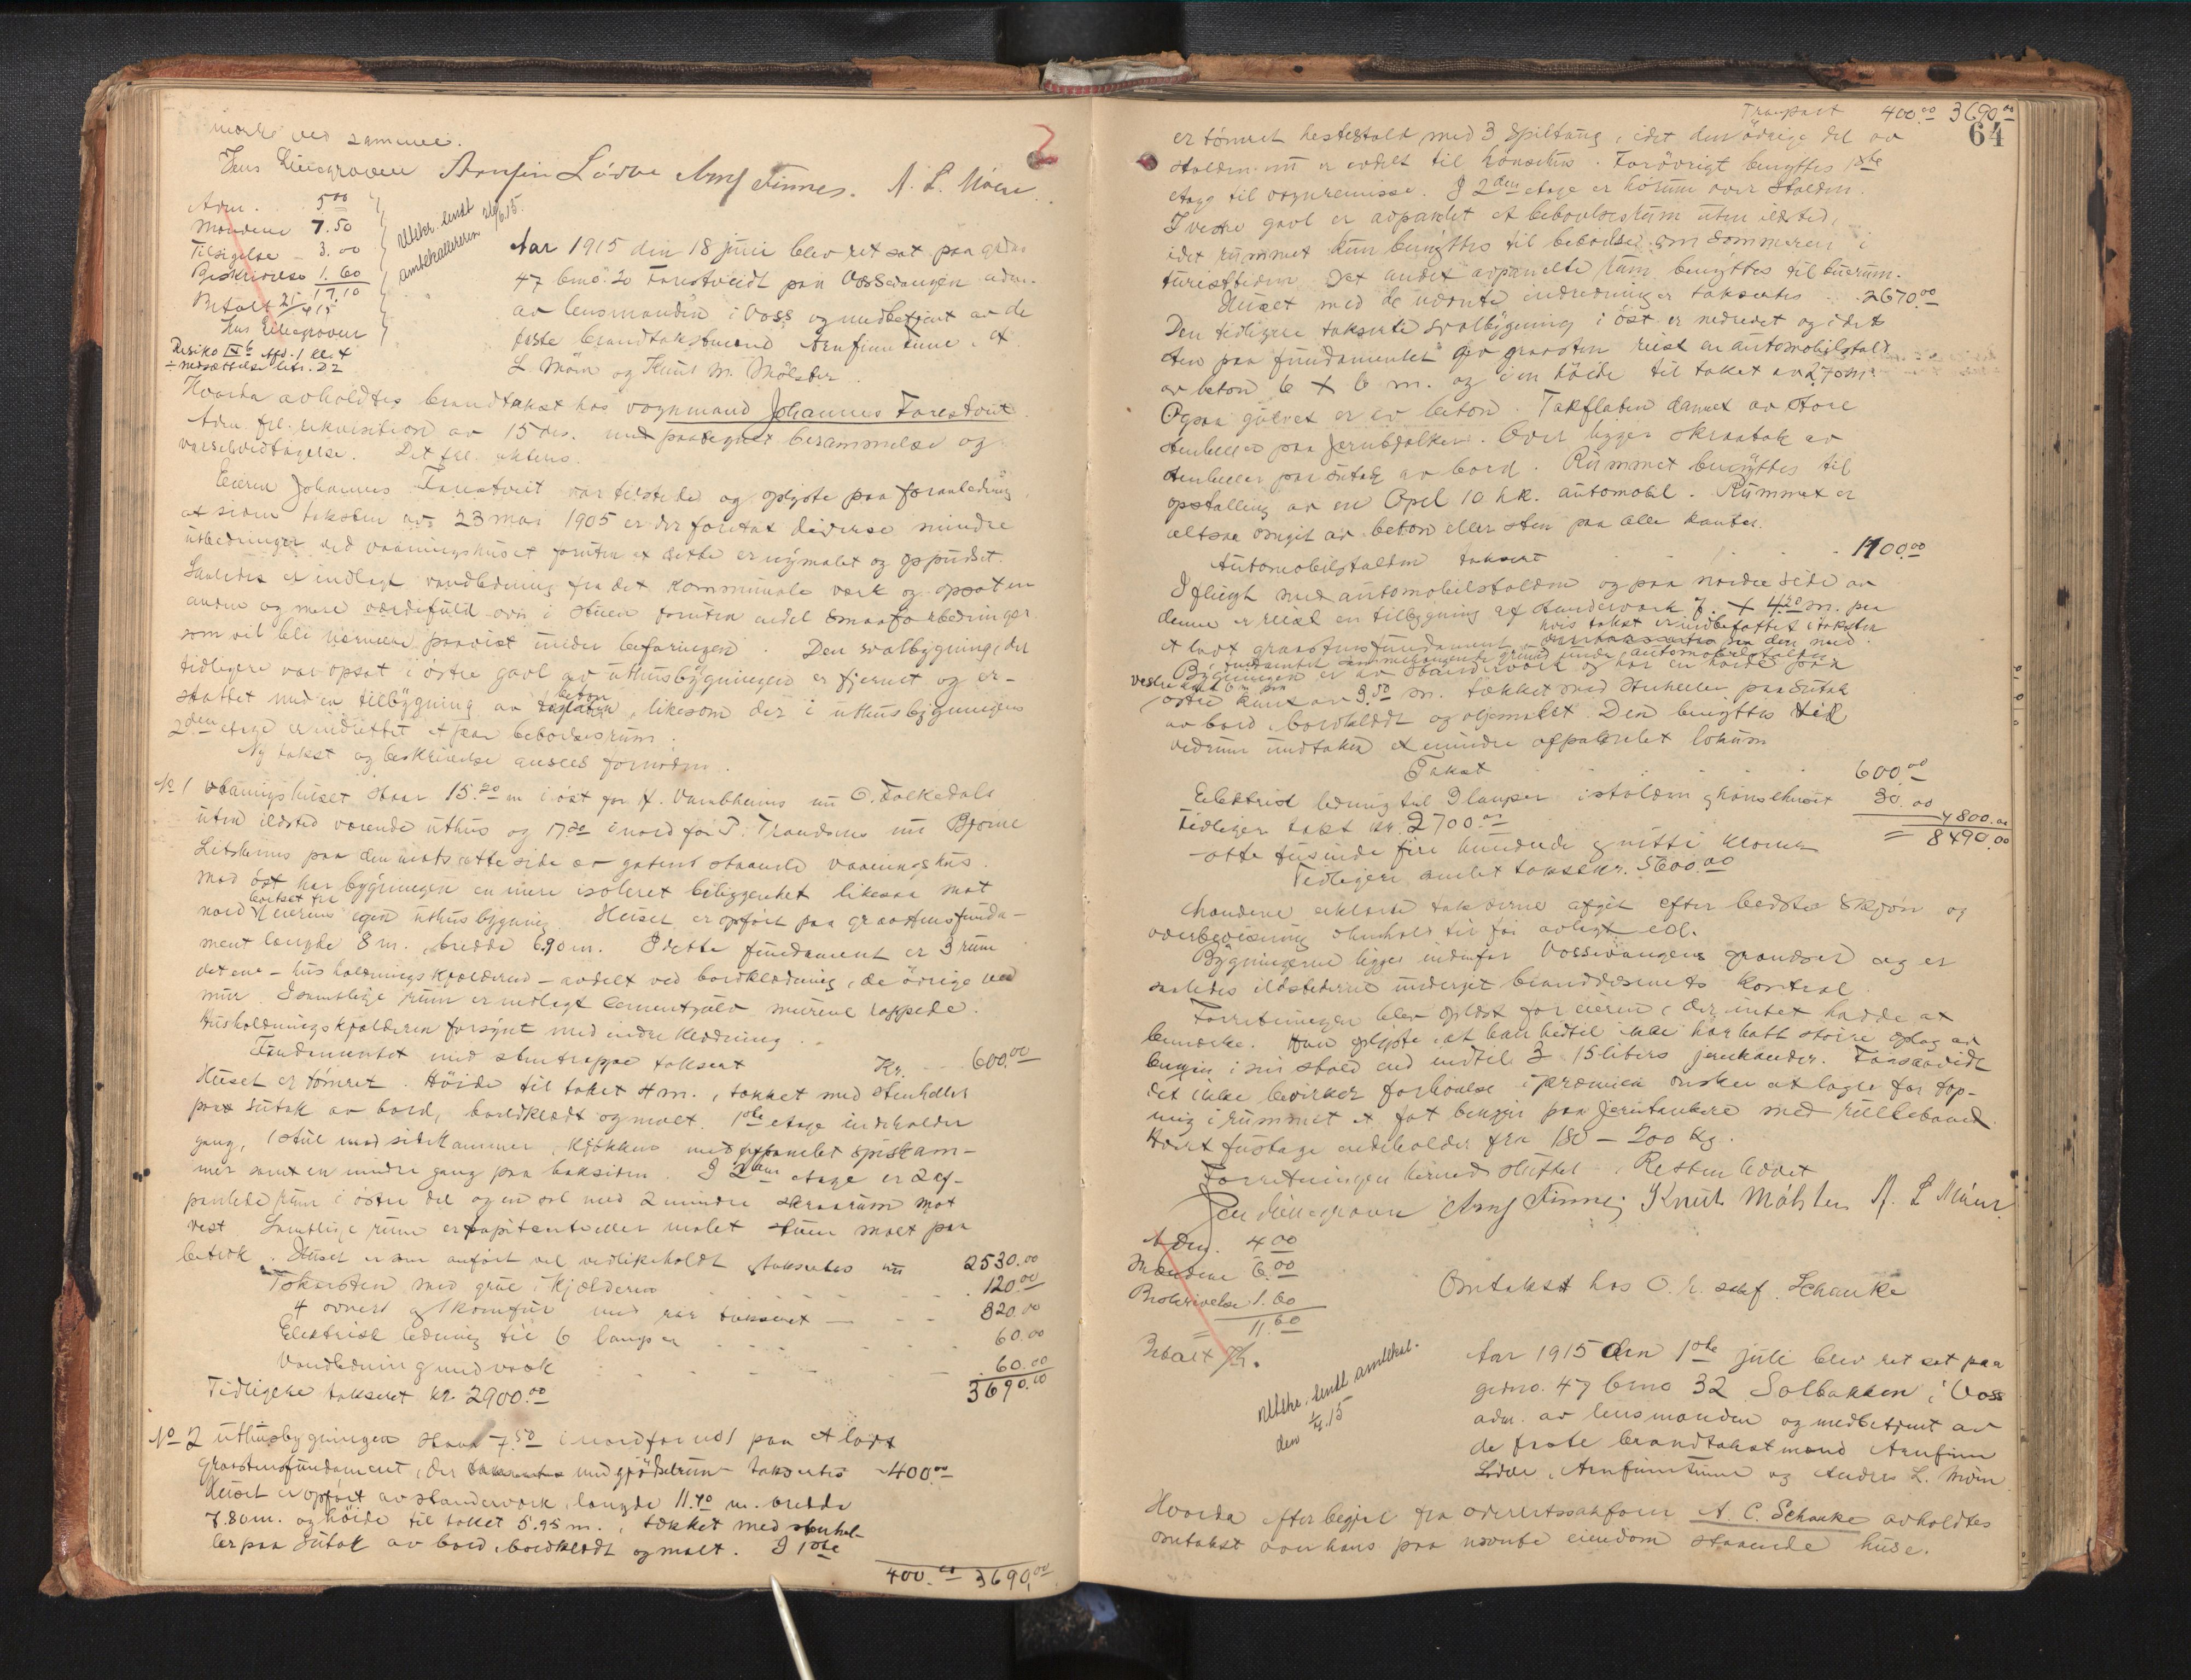 merke ved samme.
Jens Lillegraven Arnfin Lødve Arnf Finnes. A. L. Møen.
Adm. 5.00
Mændene 7.50
Tilsigelse 3.00
Beskrivelse 1.60
17.10
Betalt
Jens Lillegraven
Utskr. sendt
amtskassereren 26/6 15.
Risiko IX b Afd. 1 kl. 4
÷ nedsættelse litr. D 2
Aar 1915 den 18 juni blev ret sat paa grdno
47 bno. 20 Farestveidt paa Vossevangen adm.
av lensmanden i Voss og medbetjent av de
faste brandtakstmænd Arnfinn Finne, A.
L. Møen og Knut M. Mølster.
Hvorda avholdtes brandtakst hos vognmand Johannes Farestveit
Adm. frl. rekvisition av 15 ds. med paategnet berammelse og
varselvedtagelse. Det frl. aktens.
Eieren Johannes Farestveit var tilstede og oplyste paa foranledning,
at siden taksten av 23 mai 1905 er der foretat diverse mindre
utbedringer ved vaaningshuset foruten at dette er nymalet og oppudset.
Saaledes er indlagt vandledning fra det kommunale verk og opsat en
anden og mere værdifuld ovn i stuen foruten endel smaaforbedringer
som vil bli nærmere paavist under befaringen. Den svalbygning, der
tidligere var opsat i östre gavl av uthusbygningen er fjernet og er-
stattet med en tilbygning av beton, likesom der i uthusbygningens
2den etage er indrettet et par beboelsesrum.
Ny takst og beskrivelse ansees fornöden.
No 1 vaaningshuset staar 15.20 m i öst for H. Varbheims nu O. Folkedals
uten ildsted værende uthus og 17.20 i nord for P. Trondsens nu Bjorne
Litsheims paa den motsatte side av gaten staaende vaaningshus.
Mod öst har bygningen en mere isoleret beliggenhet likesaa mot
nord bortset fra eierens egen uthusbygning. Huset er opfört paa graastensfunda-
ment længde 8 m. bredde 6.90 m. I dette fundament er 3 rum
det ene - husholdningskjælderen - avdelt ved bordklædning, de övrige ved
mur. I samtlige rum er indlagt cementgulv murene rappede.
Husholdningskjælderen forsynt med indre klædning.
Fundamentet med stentrappe taksert Kr. 600.00
Huset er tömret. Höide til taket 4 m., tækket med stenheller
paa sutak av bord, bordklædt og malt. 1ste etage indeholder
gang, 1 stue med sidekammer, kjökken med avpanelet spiskam-
mer samt en mindre gang paa baksiden. I 2den etage er 2 af-
panelede rum i östre del og en sal med 2 mindre skraarum mot
vest. Samtlige rum er tapitsert eller malet stuen malt paa
betræk. Huset er som anfört vel vedlikeholdt taksertes nu 2530.00
Skorsten med grue i kjælderen 120.00
4 ovner og komfur med rör taksert 320.00
Elektrisk ledning til 6 lamper 60.00
Vandledning med vask 60.00
Tidligere taksert kr. 2900.00 3690.00
No 2 Uthusbygningen staar 7.50 i nord for no 1 paa et lavt
graastensfundament, der med gjödselrum taksertes 400.00
Huset er opfört av standerverk, længde 11.40 m. bredde
7.80 m. og höide til taket 5.95 m., tækket med stenhel-
ler paa sutak av bord, bordklædt og malt. I 1ste
400.00 3690.00
Transport 400.00 3690.00
64
er tömret hestestald med 3 spiltaug, idet den övrige del av
stalden nu er avdelt til hönsehus. Forövrigt benyttes 1ste
etage til vognremisse. I 2den etage er hörum over stalden.
I vestre gavl er avpanelet et beboelsesrum uten ildsted,
idet rummet kun benyttes til beboelse om sommeren i
turisttiden. Det andet avpanelte rum benyttes til buerum.
Huset med de nævnte indredninger taksertes 2670.00
Den tidligere takserte svalbygning i öst er nedrevet og i dets
sted paa fundamentet av graasten reist en automobilstald
av beton 6 × 6 m. og i en höide til taket av 2.70 m.
Ogsaa gulvet er av beton. Takflaten dannet av store
stenheller paa jernbjælker. Over ligger skraatak av
stenheller paa sutak av bord. Rummet benyttes til
opstalling av en Opel 10 h.k. automobil. Rummet er
altsaa omgit av beton eller sten paa alle kanter.
Automobilstalden taksert 1100.00
I flugt med automobilstalden og paa nordre side av
denne er reist en tilbygning af standerverk 7. × 4.20 m. paa
et lavt graastensfundament hvis takst er indbefattet i taksten
fundamentet sammenhængende grund under automobilstalden
Bygningen er av standerverk og har en höide paa
östre kant av 3.50 m. tækket med stenheller paa sutak
av bord, bordklædt og oljemalet. Den benyttes til
vedrum undtaken et mindre afpanelet lokum
Takst 600.00
Elektrisk ledning til 3 lamper i stalden og hönsehuset 30.00
4800.00
Tidligere takst kr. 2700.00 = 8490.00
- otte tusinde fire hundrede og nitti kroner
Tidligere samlet takst kr. 5600.00
Mændene erklærte taksterne afgit efter bedste skjön og
overbevisning i henhold til för avlagt ed.
Bygningerne ligger indenfor Vossevangens grændser og er
saaledes ildstederne undergit brandvæsenets kontrol.
Forretningen blev oplæst for eieren, der intet hadde at
bemerke. Han oplyste, at han hidtil ikke har hatt större oplag av
bensin i sin stald end indtil 3 15 liters jernkander. Forsaavidt
det ikke bevirker forhöielse i præmien önsker at lagre for tap-
ning i rummet et fat bensin paa jerntankere med rullebaand.
Hvert fustage indeholder fra 180 - 200 kg.
Forretningen hermed sluttet. Retten hævet
Jens Lillegraven Arnf Finne; Knut Mölster A. L. Møen.
Adm. 4.00
Mændene 6.00
Beskrivelse 1.60
= 11.60
Betalt
Utskr. sendt amtskas.
Omtakst hos O. r. sakf. Schanke
Aar 1915 den 1ste juli blev ret sat paa
grdno. 47 bno 32 Solbakken i Voss
adm. av lensmanden og medbetjent av
de faste brandtakstmænd Arnfinn
Lödve, Arnfinn Finne og Anders L. Møen
Hvorda efter begjær fra overretssakförer A. C. Schanke avholdtes
omtakst over hans paa nævnte eiendom staaende huse.